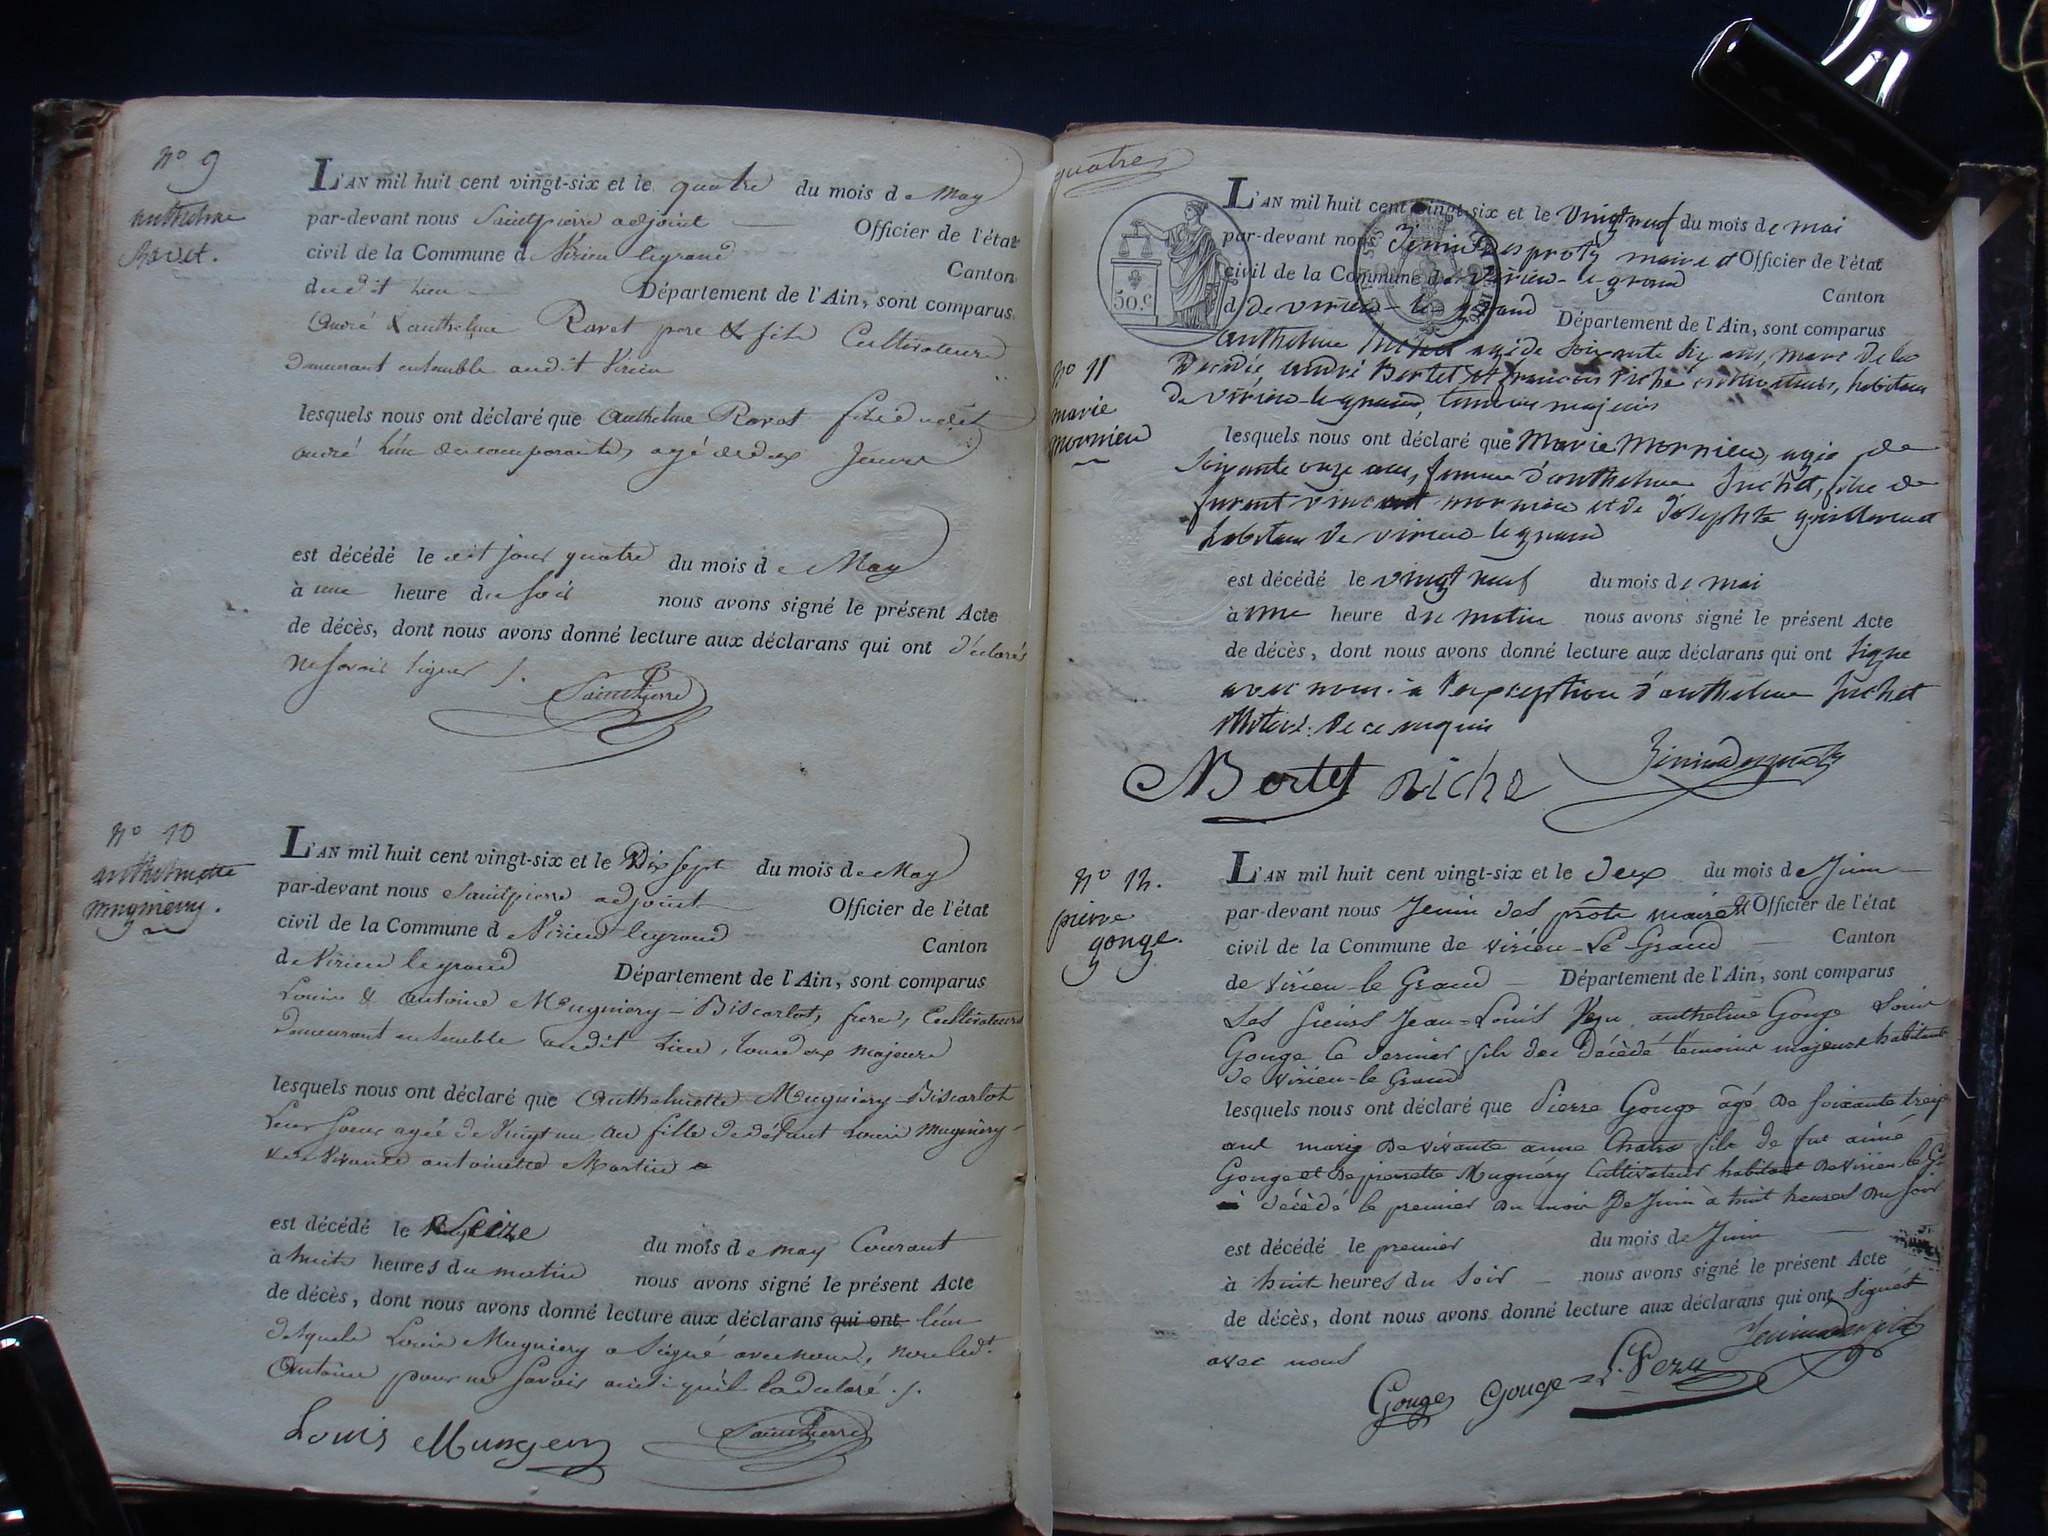 N° 9
anthelme
Ravet.
L'AN mil huit cent vingt-six et le quatre du mois de May
par-devant nous Saintpierre adjoint Officier de l'état
civil de la Commune d Virieu legrand Canton
dudit lieu Département de l'Ain, sont comparus
André & anthelme Ravet pere & fils Cultivateurs
Demeurant ensemble audit Virieu
lesquels nous ont déclaré que Anthelme Ravet fils dudit
andré l'un des comparants, agé de deux Jours
est décédé le dit jour quatre du mois de May
à une heure du soir nous avons signé le présent Acte
de décès, dont nous avons donné lecture aux déclarans qui ont déclarés
ne savoir signer /.
SaintPierre
N° 10
anthelmette
mugniery.
L'AN mil huit cent vingt-six et le Dix sept du mois de May
par-devant nous Saintpierre adjoint Officier de l'état
civil de la Commune d Virieu legrand Canton
de Virieu legrand Département de l'Ain, sont comparus
Louis & antoine Mugniery-Biscarlot, frere, Cultivateurs
demeurant ensemble audit Lieu, tous deux majeurs
lesquels nous ont déclaré que Anthelmette Mugniery-Biscarlot
Leur soeur agée de vingt un an fille de défunt Louis mugniery
& de vivante antoinette Martin
est décédé le Seize du mois de may Courant
à huit heures du matin nous avons signé le présent Acte
de décès, dont nous avons donné lecture aux déclarans qui ont l'un
desquels Louis Mugniery a signé avec nous, non led.t
Antoine pour ne savoir ainsi qu'il l'a declaré ./.
Louis Mungery SaintPierre
quatre
50 c.
N° 11
marie
mornieu
L'AN mil huit cent vingt-six et le vingt neuf du mois de mai
par-devant nous Jenin Desprotz maire et Officier de l'état
civil de la Commune de virieu-le grand Canton
d de virieu-le grand Département de l'Ain, sont comparus
anthelme Juchet agé de soixante dix ans, mari de la
Decédée, andré Bertet et françois Riche cultivateurs, habitans
de virieu-legrand, temoins majeurs
lesquels nous ont déclaré que Marie Mornieu, agée de
soixante onze ans, femme d'anthelme Juchet, fille de
furent vincent mornieu et de Josephte guillermet
habitans de virieu-le grand
est décédé le vingt neuf du mois de mai
à une heure du matin nous avons signé le présent Acte
de décès, dont nous avons donné lecture aux déclarans qui ont signé
avec nous. à l'exception d'anthelme Juchet
de ce requis
Bertet riche Jenin Desprotz
N° 12.
pierre
gouge.
L'AN mil huit cent vingt-six et le deux du mois de Juin
par-devant nous Jenin des prôts maire & Officier de l'état
civil de la Commune de virieu-Le Grand Canton
de virieu-le Grand Département de l'Ain, sont comparus
Les sieurs Jean-Louis Pezu, anthelme Gouge Louis
Gouge le dernier fils du décédé temoins majeurs habitants
de virieu-le Grand
lesquels nous ont déclaré que Pierre Gouge âgé de soixante treize
ans mary de vivante anne fils de fut aimé
Gouge et de pierrette Mugnery Cultivateur habitant de virieu-le Gd
décédé le premier du mois de Juin à huit heures du soir
est décédé le premier du mois de Juin
à huit heures du soir nous avons signé le présent Acte
de décès, dont nous avons donné lecture aux déclarans qui ont signés
avec nous Jenin Desprotz
Gouge Gouge L. Pezu